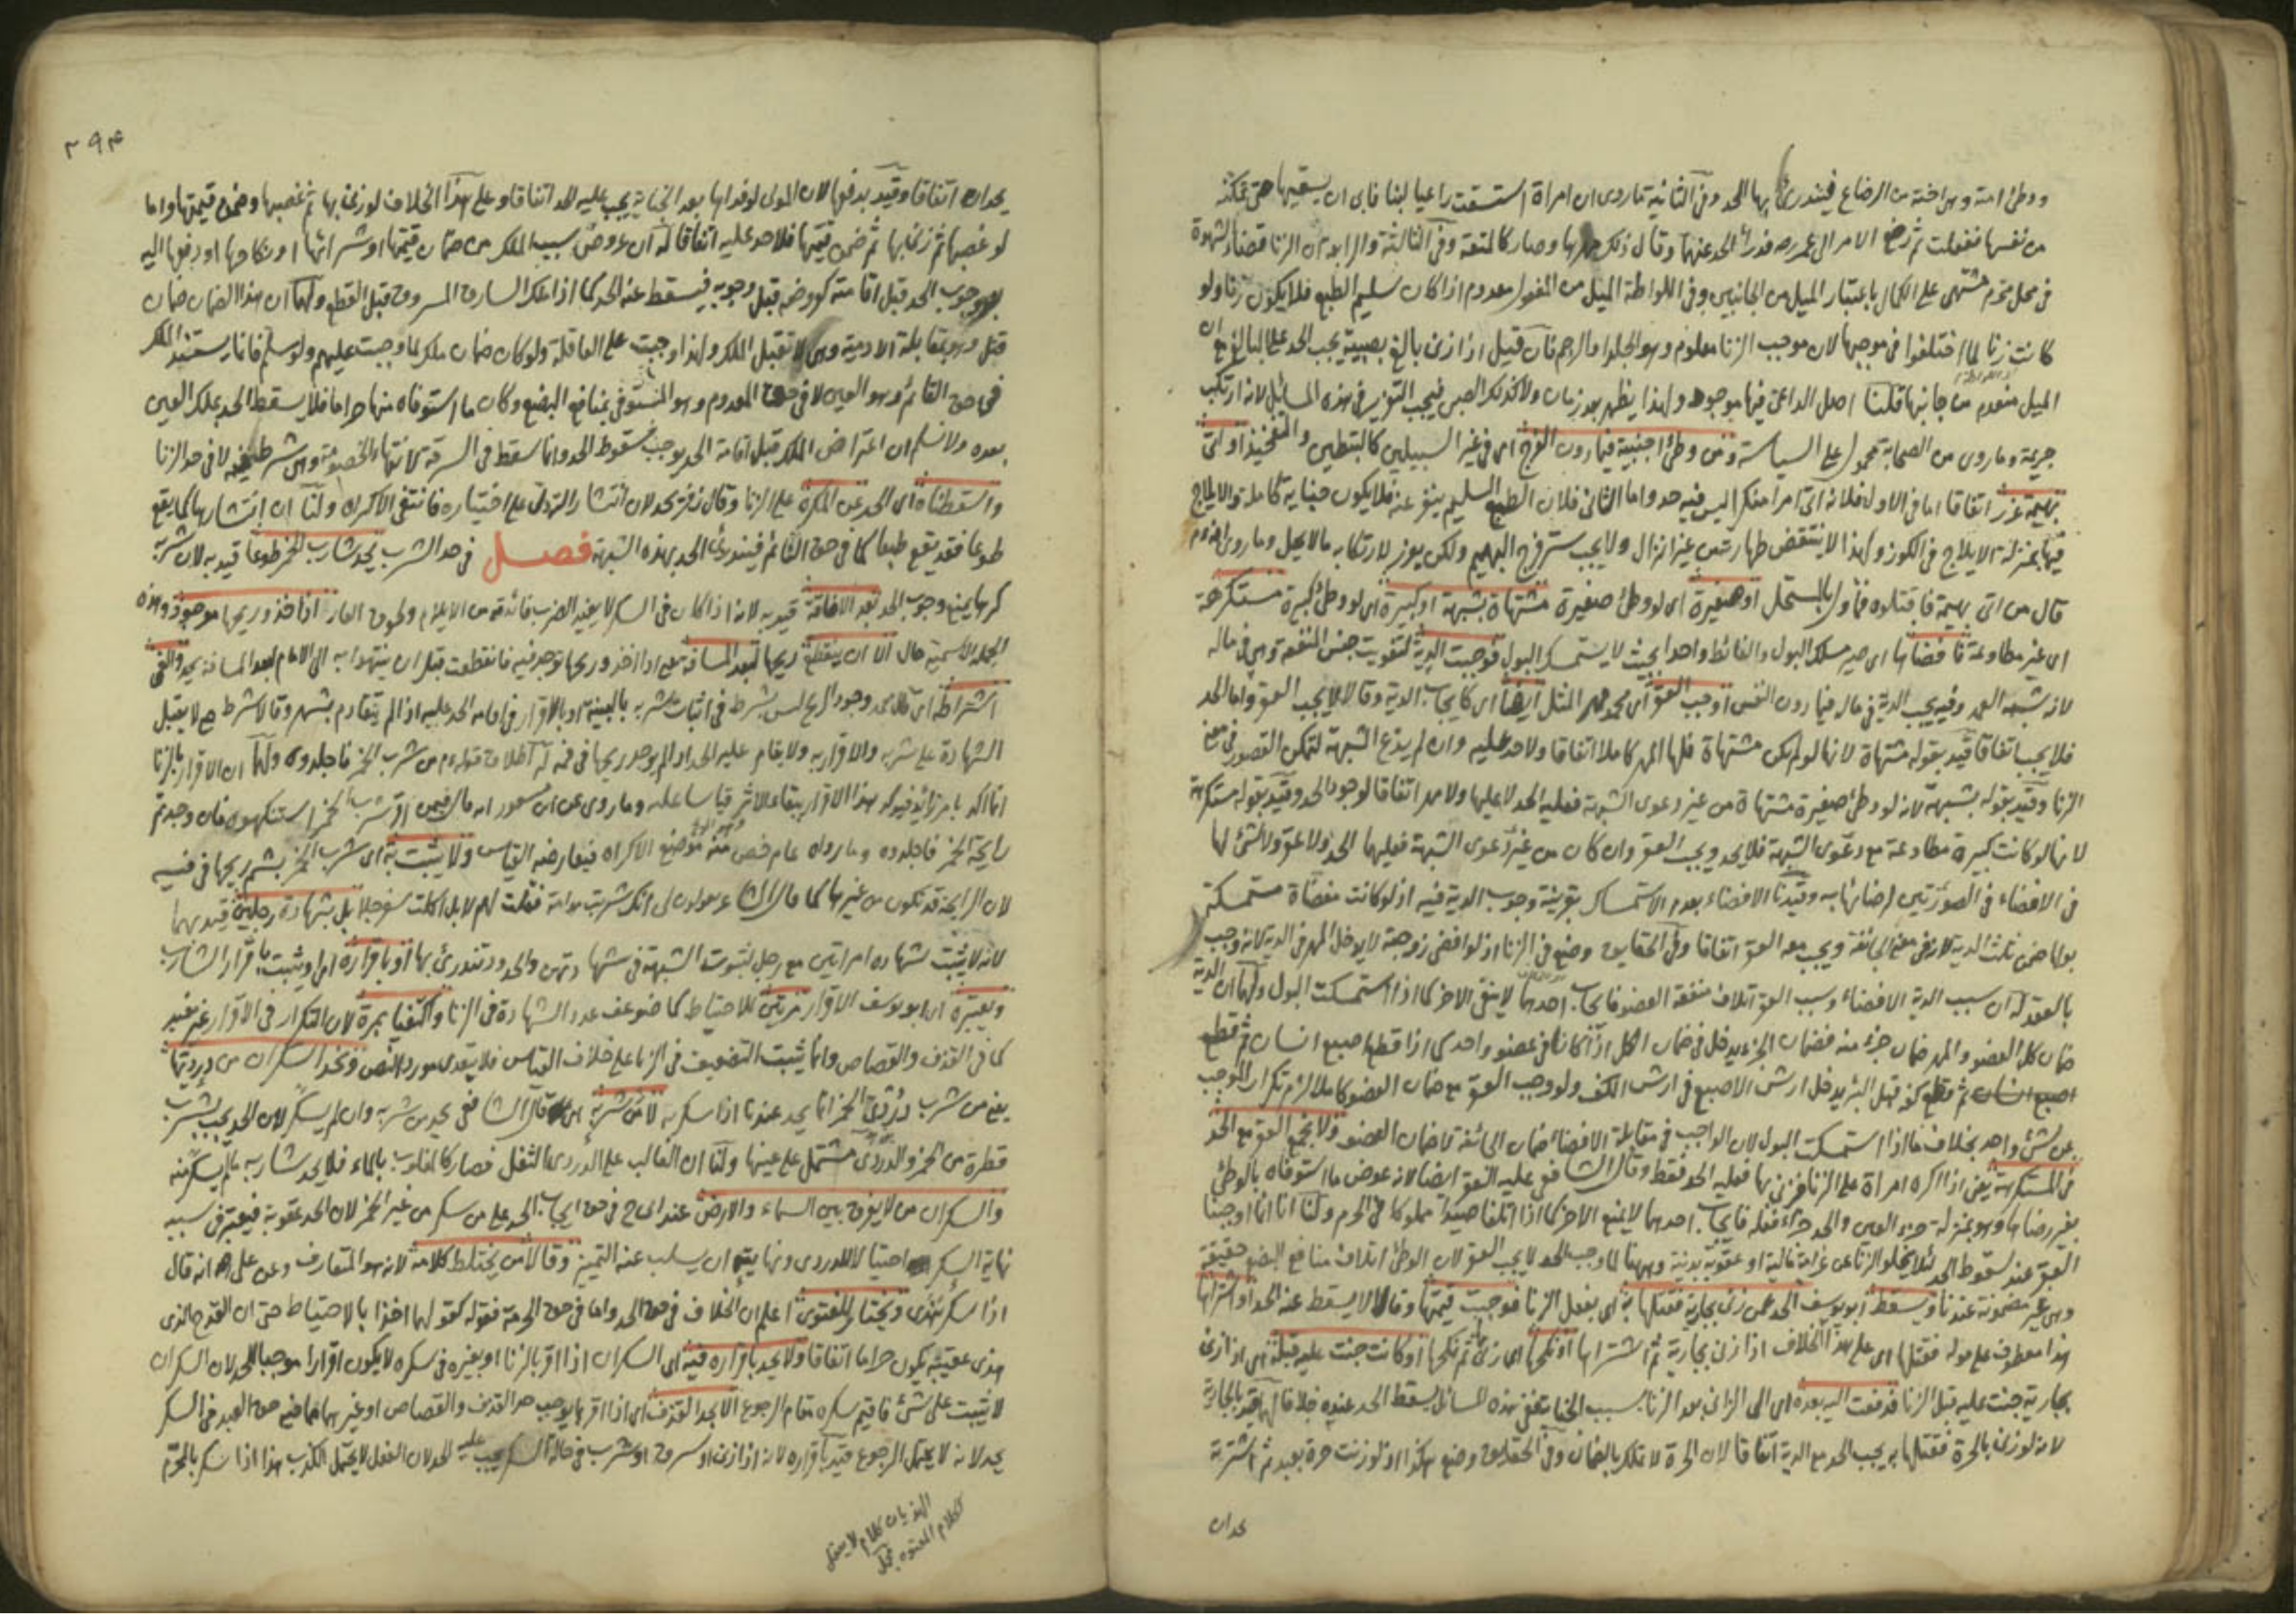 ووطئ امته وهى اخته من الرضاع فيندرئ بها الحد وفى الثانية ماروى ان امراة استسقت راعيا لبنا فابى ان يسقيها حتى تمكنه
من نفسها ففعلت ثم رفع الامر الى عمر رضه فدرأ الحد عنهما وقال ذلك مهرها وصار كالمتعة وفى الثالثة والرابعة ان الزنا قضاء الشهوة
فى محل محرم مشتهى على الكمال باعتبار الميل من الجانبين وفى اللواطة الميل من المفعول معدوم اذا كان سليم الطبع فلا يكون زنا ولو
كانت زنا لما اختلفوا فى موجبها لان موجب الزنا معلوم وهو الجلد او الرجم فان قيل اذا زنى بالغ بصبية يجب الحد على البالغ مع ان
الميل منعدم من جانبها قلنا اصل الداعى فيها موجود ولهذا يظهر بعد زمان ولا كذلك الصبى فيجب التعزير فى هذه المسائل لانه ارتكب
جريمة وماروى من الصحابة محمول على السياسة ومن وطئ اجنبية فيما دون الفرج اى فى غير السبيلين كالتبطين والتفخيذ او اتى
بهيمة عزر اتفاقا اما فى الاول فلانه اتى امرا منكرا ليس فيه حد واما الثانى فلان الطبع السليم ينفر عنه فلا يكون جناية كاملة والايلاج
فيها بمنزلة الايلاج فى الكوز ولهذا لا ينتقض طهارته من غير انزال ولا يجب ستر فرج البهيم ولكن يعزر لارتكابه مالا يحل وماروى انه عم
قال من اتى بهيمة فاقتلوه فمأول بالمستحل او صغيرة اى لو وطئ صغيرة مشتهاة بشبهة او كبيرة اى لو وطئ كبيرة مستكرهة
اى غير مطاوعة فافضاها اى صير مسلك البول والغائط واحدا بحيث لا يستمسك البول فوجبت الدية لتفويت جنس المنفعة وهى فى ماله
لانه شبه العمد وفيه يجب الدية فى ماله فيما دون النفس اوجب العقر اى محمد مهر المثل ايضا اى كايجاب الدية وقالا لا يجب العقر واما الحد
فلا يجب اتفاقا قيد بقوله مشتهاة لانها لو لم تكن مشتهاة فلها المهر كاملا اتفاقا ولا حد عليه وان لم يدع الشبهة لتمكن القصور فى معنى
الزنا وقيد بقوله بشبهة لانه لو وطئ صغيرة مشتهاة من غير دعوى الشبهة فعليه الحد لا عليها ولا مهر اتفاقا لوجود الحد وقيد بقوله مستكرهة
لانها لو كانت كبيرة مطاوعة مع دعوى الشبهة فلا يحد ويجب العقر وان كان من غير دعوى الشبهة فعليهما الحد ولا عقر ولا شئ لها
فى الافضاء فى الصورتين لرضائها به وقيدنا الافضاء بعدم الاستمساك بقرينة وجوب الدية فيه اذ لو كانت مفضاة مستمسكة
بولها ضمن ثلث الدية لانه فى معنى الجائفة ويجب معه العقر اتفاقا وفى الحقايق وضع فى الزنا اذ لو افضى زوجته لا يدخل المهر فى الدية لانه وجب
بالعقد له ان سبب الدية الافضاء وسبب العقر اتلاف منفعة العضو فايجاب احدهما لا ينفى الاخر كما اذا استمسكت البول ولهما ان الدية
ضمان كل العضو والمهر ضمان جزء منه فضمان الجزء يدخل فى ضمان الكل اذا كانا فى عضو واحد كما اذا قطع اصبع انسان ثم قطع
اصبع انسان ثم قطع كفه قبل البرء يدخل ارش الاصبع فى ارش الكف ولو وجب العقر مع ضمان العضو كاملا لزم تكرار الموجب
عن شئ واحد بخلاف ما اذا استمسكت البول لان الواجب فى مقابلة الافضاء ضمان الجائفة لا ضمان العضو ولا يجمع العقر مع الحد
فى المستكرهة يعنى اذا اكره امراة على الزنا فزنى بها فعليه الحد فقط وقال الشافعى عليه العقر ايضا لانه عوض ما استوفاه بالوطئ
بغير رضاها وهو بمنزلة جزء العين والحد جزاء فعله فايجاب احدهما لا يمنع الاخر كما اذا اتلفا صيدا مملوكا فى الحرم ولنا انا انما اوجبنا
العقر عند سقوط الحد لئلا يخلو الزنا عن غرامة مالية او عقوبة بدنية وههنا لما وجب الحد لا يجب العقر لان الوطئ اتلاف منافع البضع حقيقة
وهى غير مضمونة عندنا ويسقط ابو يوسف الحد عمن زنى بجارية فقتلها به اى بفعل الزنا فوجبت قيمتها وقالا لا يسقط عنه الحد او اشتراها
هذا معطوف على قوله فقتلها اى على هذا الخلاف اذا زنى بجارية ثم اشتراها او نكحها اى زنى ثم نكحها او كانت جنت عليه قبله اى اذا زنى
بجارية جنت عليه قبل الزنا فدفعت اليه بعده اى الى الزانى بعد الزنا بسبب الجناية ففى هذه المسائل يسقط الحد عنده خلافا لهما قيد بالجارية
لانه لو زنى بالحرة فقتلها به يجب الحد مع الدية اتفاقا لان الحرة لا تملك بالضمان وفى الحقايق وضع هكذا اذ لو زنت حرة بعبد ثم اشترته
يحدان
٢٩٤
يحدان اتفاقا وقيد بدفعها لان المولى لو فداها بعد الجناية يجب عليه الحد اتفاقا وعلى هذا الخلاف لو زنى بها ثم غصبها وضمن قيمتها واما
لو غصبها ثم زنى بها ثم ضمن قيمتها فلا حد عليه اتفاقا له ان عروض سبب الملك من ضمان قيمتها او شرائها او نكاحها او دفعها اليه
بعد وجوب الحد قبل اقامته كعروضه قبل وجوبه فيسقط عنه الحد كما اذا ملك السارق المسروق قبل القطع ولهما ان هذا الضمان ضمان
قتل وهو بمقابلة الادمية وهى لا تقبل الملك ولهذا وجبت على العاقلة ولو كان ضمان ملك لما وجبت عليهم ولو سلم فانما يستفيد الملك
فى حق القائم وهو العين لا فى حق المعدوم وهو المستوفى بمنافع البضع وكان ما استوفاه منها حراما فلا يسقط الحد بملك العين
بعده ولا نسلم ان اعتراض الملك قبل اقامة الحد يوجب سقوط الحد وانما سقط فى السرقة لانتهاء الخصومة وهى شرط فيه لا فى حد الزنا
واسقطناه اى الحد عن المكره على الزنا وقال زفر يحد لان انتشار الته دل على اختياره فانتفى الاكراه ولنا ان انتشارها كما يقع
طوعا فقد يقع طبعا كما فى حق النائم فيندرئ الحد بهذه الشبهة فصل فى حد الشرب يحد شارب الخمر طوعا قيد به لان شربه
كرها يمنع وجوب الحد بعد الافاقة قيد به لانه اذا كان فى السكر لا يفيد الضرب فائدته من الايلام ولحوق العار اذا اخذ وريحها موجود وهذه
الجملة الاسمية حال الا ان ينقطع ريحها لبعد المسافة يعنى اذا اخذ وريحها توجد فيه فانقطعت قبل ان ينتهوا به الى الامام لبعد المسافة يحد والغى
اشتراطه اى قال محمد وجود الريح ليس بشرط فى اثبات شربه بالبينة او بالاقرار فى اقامة الحد عليه اذا لم يتقادم بشهر وقالا شرط حتى لا يقبل
الشهادة على شربه والاقرار به ولا يقام عليه الحد اذا لم يوجد ريحها فى فمه له اطلاق قوله عم من شرب الخمر فاجلدوه ولهما ان الاقرار بالزنا
رايحة الخمر فاجلدوه وما رواه عام خص منه موضع الاكراه فيعارضه القياس ولا يثبت به اى شرب الخمر بشم ريحها فى فيه
لان الرايحة قد تكون من غيرها كما قال الشاعر يقولون لى انكه شربت مدامة فقلت لهم لا بل اكلت سفرجلا بل بشهادة رجلين قيد بهما
لانه لا يثبت بشهادة امراتين مع رجل لثبوت الشبهة فى شهادتهن والحدود تندرئ بها او باقراره اى ويثبت باقرار الشارب
ويعتبره اى ابو يوسف الاقرار مرتين للاحتياط كما ضوعف عدد الشهادة فى الزنا واكتفيا بمرة لان التكرار فى الاقرار غير مفيد
كما فى القذف والقصاص وانما يثبت التضعيف فى الزنا على خلاف القياس فلا يتعدى مورد النص ونحد السكران من درديها
يعنى من شرب دردى الخمر انما يحد عندنا اذا سكر به لا من شربه اى قال الشافعى يحد من شربه وان لم يسكر لان الحد يجب بشرب
قطرة من الخمر والدردى مشتمل على عينها ولنا ان الغالب على الدردى الثفل فصار كالمغلوب بالماء فلا يحد شاربه مالم يسكر منه
والسكران من لا يفرق بين السماء والارض عند ابى ح فى حق ايجاب الحد على من سكر من غير الخمر لان الحد عقوبة فيعتبر فى سببه
نهاية السكر احتيالا للدرء ونهايته ان يسلب عنه التمييز وقالا من يختلط كلامه لانه هو المتعارف وعن على انه قال
اذا سكر هذى ويختار للفتوى اعلم ان الخلاف فى حق الحد واما فى حق الحرمة فقوله كقولهما اخذا بالاحتياط حتى ان القدح الذى
هذى عقيبه يكون حراما اتفاقا ولا يحد باقراره فيه اى السكران اذا اقر بالزنا او بغيره فى سكره لا يكون اقرارا موجبا للحد لان السكران
لا يثبت على شئ فاقيم سكره مقام الرجوع الا بحد القذف اى اذا اقر بما يوجب حد القذف والقصاص او غيرهما مما فيه حق العبد فى السكر
يحد لانه لا يحتمل الرجوع قيد باقراره لانه اذا زنى او سرق او شرب فى حالة السكر يجب عليه الحد لان الفعل لا يحتمل الكذب هذا اذا سكر بالمحرم
الهذيان كلام لا يعقل
ككلام المعتوه